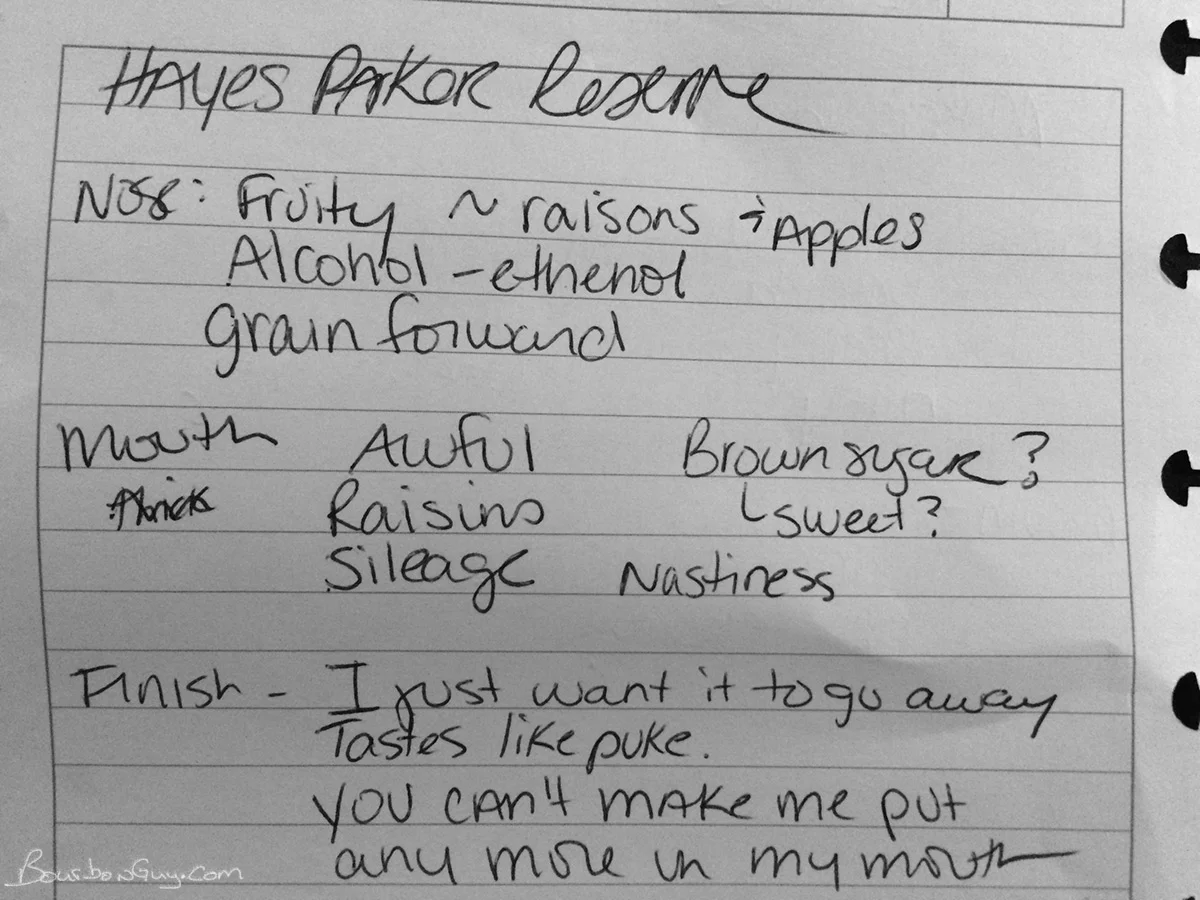 HAYES PARKOR Reserve
NOSE: Fruity ~ raisons + Apples
Alcohol - ethenol
grain forward
Mouth Awful Brown sugar?
thick Raisins sweet?
Sileage Nastiness
Finish - I just want it to go away
Tastes like puke.
you can't make me put
any more in my mouth
BourbonGuy.com